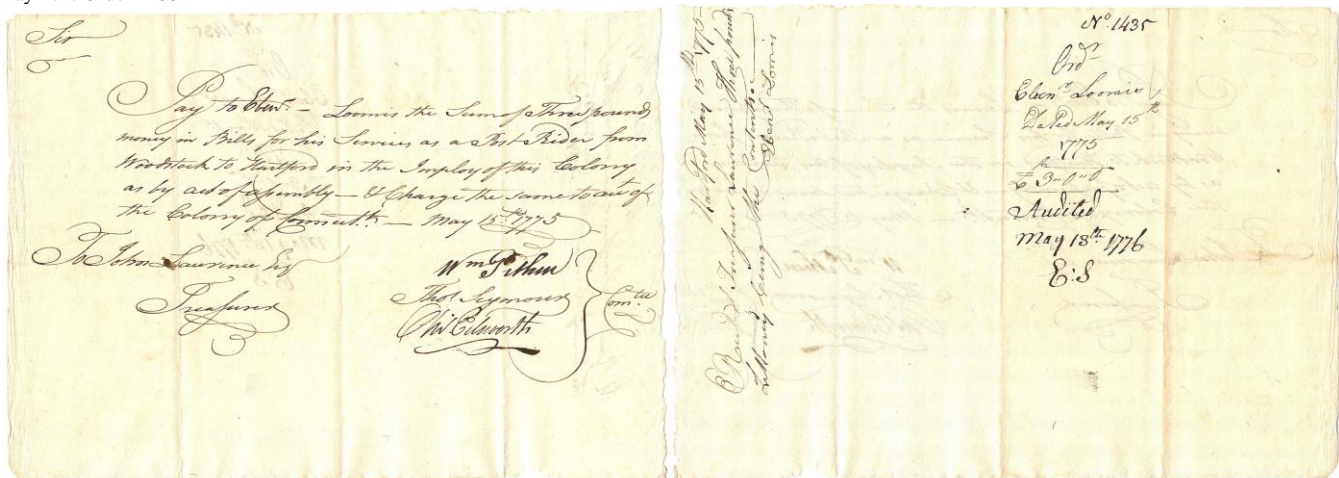 Sir
Pay to Ebenr. — Loomis the Sum of Three pounds
money in Bills for his Services as a Post Rider from
Woodstock to Hartford in the Imploy of this Colony
as by act of assembly — & Charge the same to acct of
the Colony of Connectt. — May 15th 1775
To John Lawrence Esq
Treasurer
Wm Pitkin
Thos Seymour
Comtee
Hartford May 15th 1775
Recd of Treasurer Lawrence Three pounds
Money being the Contents
Ebenr Loomis
No. 1435
Ordr
Ebenr Loomis
Dated May 15th
1775
£3"0"0
Audited
May 18th 1776
E:S